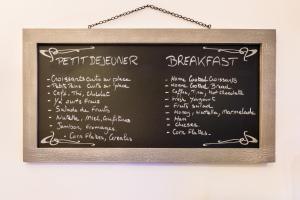 PETIT DEJEUNER
- Croissants cuits sur place
- Petits Pains cuits sur place
- Café, Thé, Chocolat
- Yaourts Frais
- Salade de Fruits
- Nutella, Miel, Confitures
- Jambon, Fromages
- Corn Flakes, Cereales
BREAKFAST
- Home Cooked Croissants
- Home Cooked Bread
- Coffee, Tea, Hot chocolate
- Fresh Yogourt
- Fruit salad
- Honey, Nutella, Marmelade
- Ham
- Cheeses
- Corn Flakes.